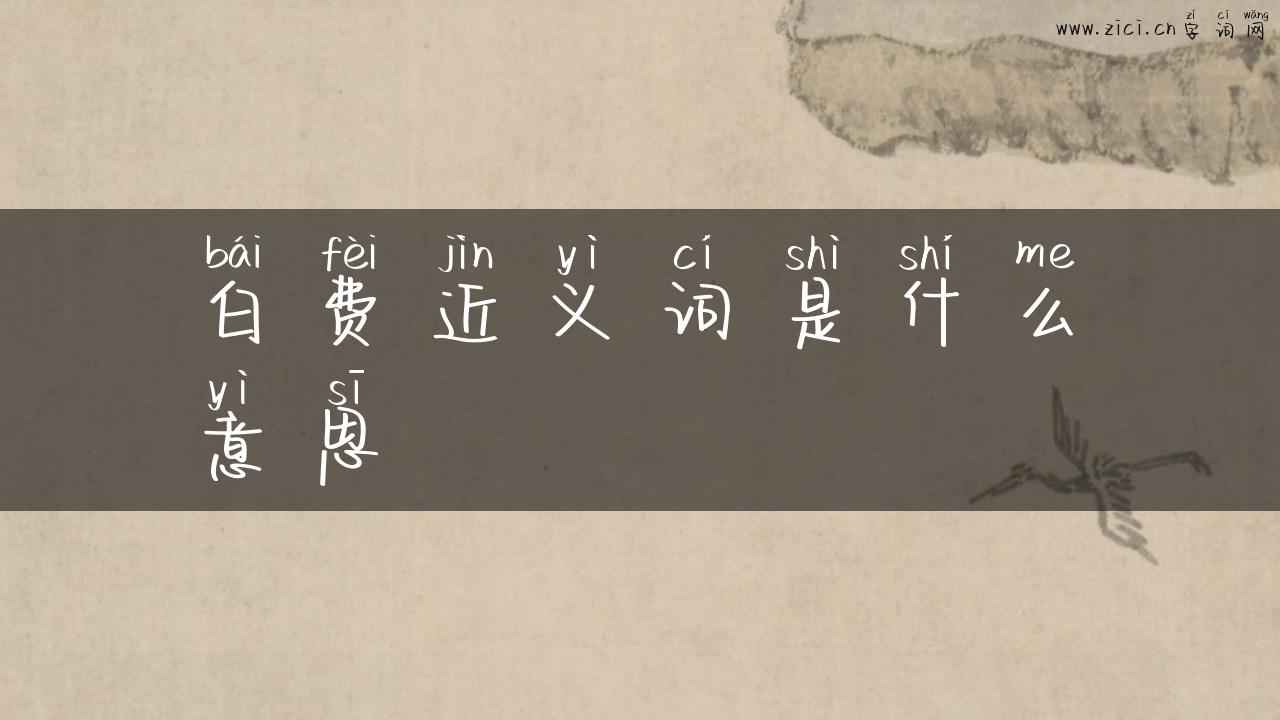 zì cí wǎng
www.zici.cn 字词网
bái fèi jìn yì cí shì shí me
白费近义词是什么
yì sī
意思